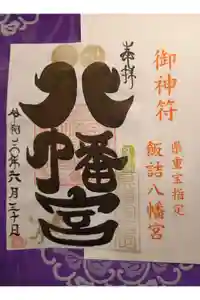 御神符
県重宝指定
飯詰八幡宮
奉拝
八幡宮
令和六年六月三十日